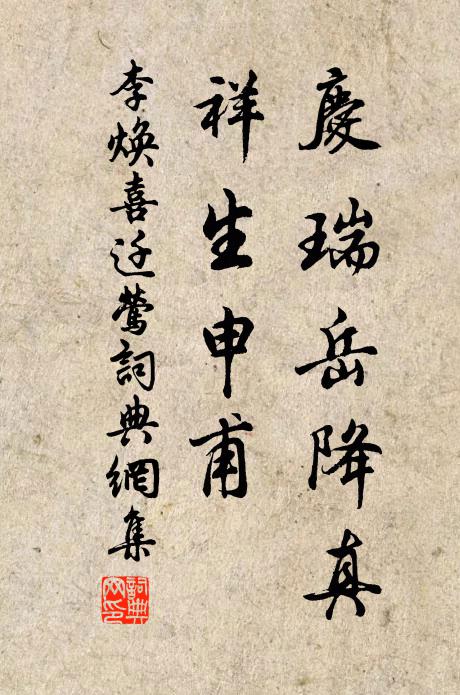 慶瑞岳降真
祥生申甫
李煥喜迁鶯詞典網集
詞典網印